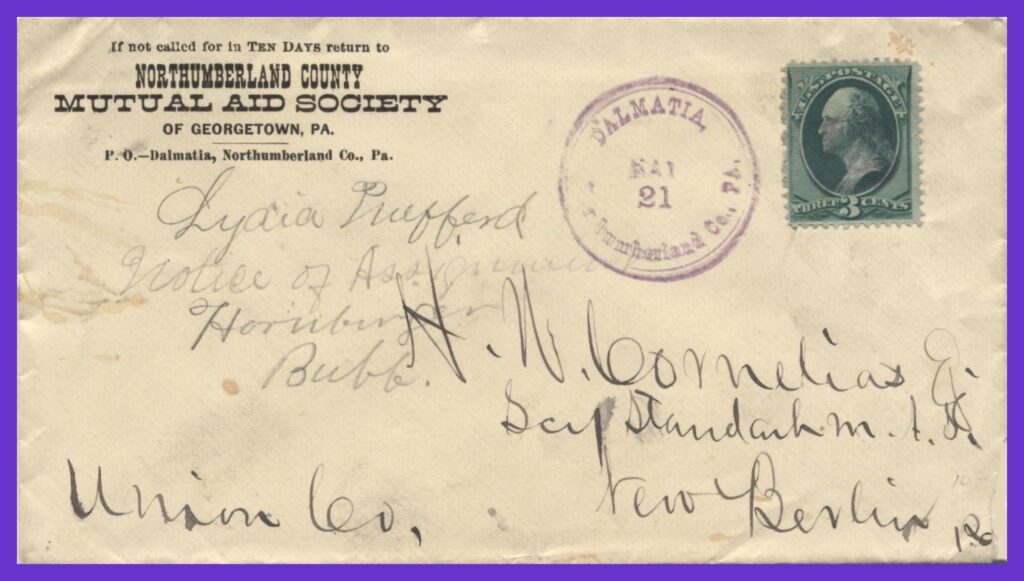 If not called for in TEN DAYS return to
NORTHUMBERLAND COUNTY
MUTUAL AID SOCIETY
OF GEORGETOWN, PA.
P. O.—Dalmatia, Northumberland Co., Pa.
DALMATIA,
MAI
21
thumberland Co., Pa.
U.S. POSTAGE
THREE 3 CENTS
Lydia
Notice of
Hornberger
Bubb.
N. W. Cornelias
Standard m. A. S.
New Berlin
Union Co,